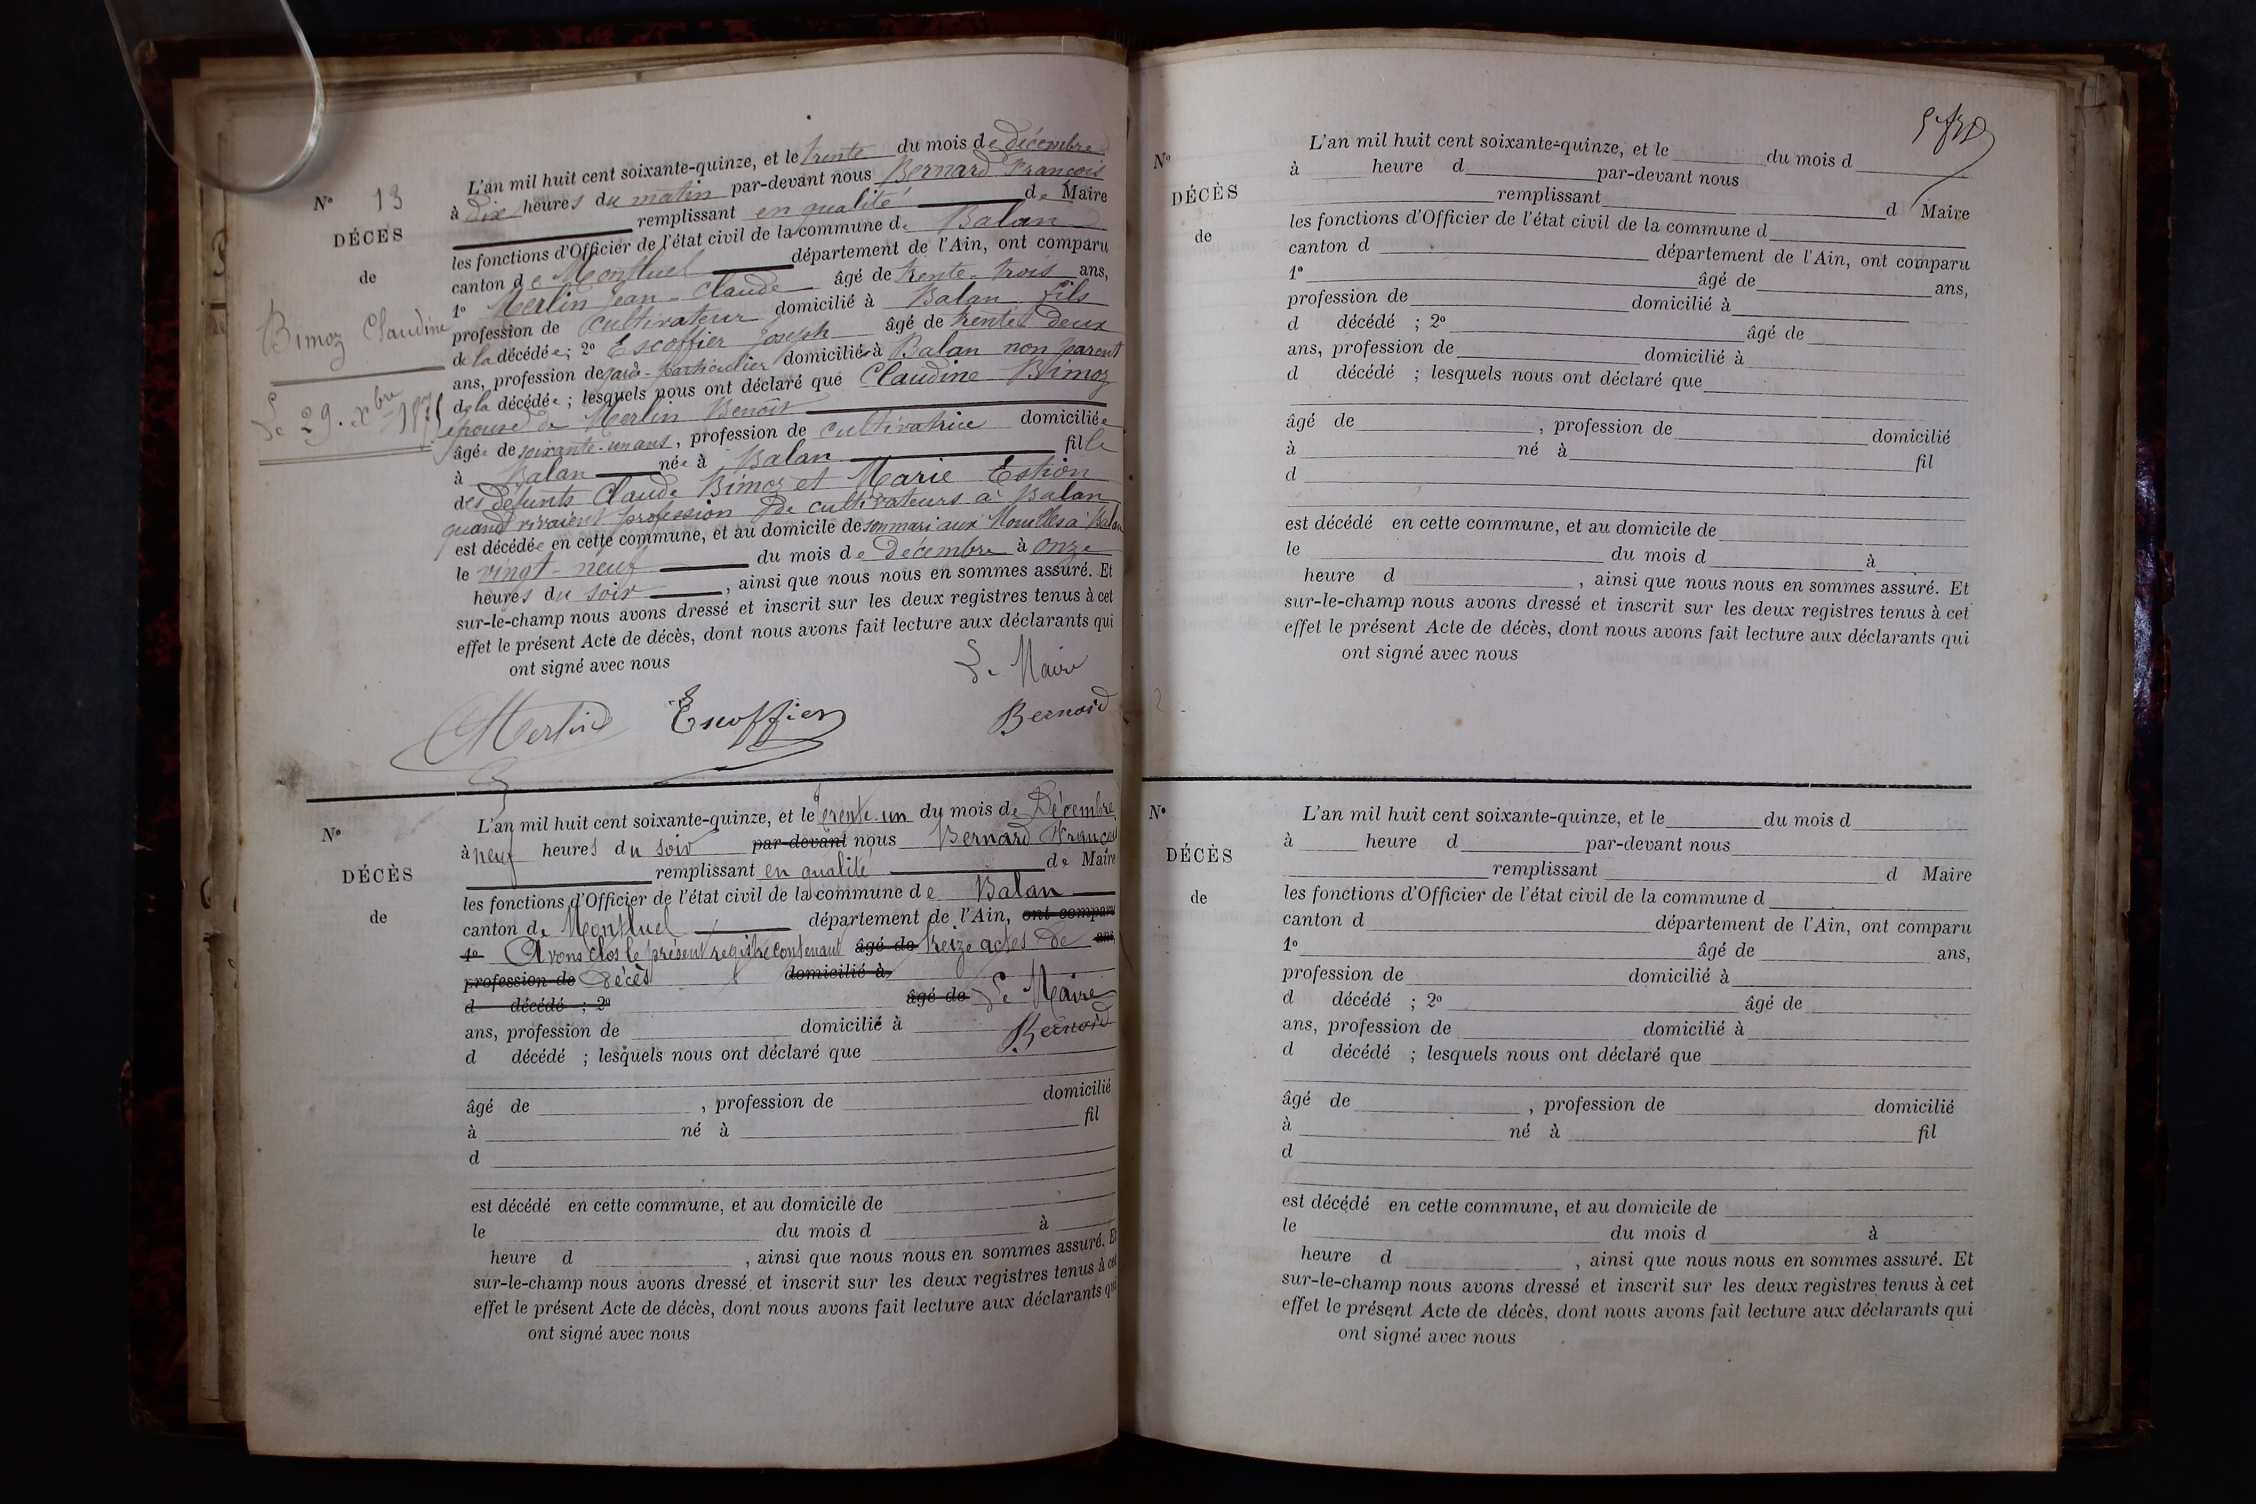 N° 13
DÉCÈS
de
Bimoz Claudine
Le 29. Xbre 1875
L'an mil huit cent soixante-quinze, et le trente du mois de décembre
à dix heures du matin par-devant nous Bernard François
remplissant en qualité de Maire
les fonctions d'Officier de l'état civil de la commune de Balan
canton de Montluel département de l'Ain, ont comparu
1° Merlin Jean-Claude âgé de trente-trois ans,
profession de cultivateur domicilié à Balan fils
de la décédée ; 2° Escoffier Joseph âgé de trente deux
ans, profession de garde-particulier domicilié à Balan non parent
de la décédée ; lesquels nous ont déclaré que Claudine Bimoz
épouse de Merlin Benoît
âgée de soixante-un ans, profession de cultivatrice domiciliée
à Balan née à Balan fille
des défunts Claude Bimoz et Marie Estion
quand vivaient profession de cultivateurs à Balan
est décédée en cette commune, et au domicile de son mari aux Mouilles à Balan
le vingt-neuf du mois de Décembre à onze
heures du soir, ainsi que nous nous en sommes assuré. Et
sur-le-champ nous avons dressé et inscrit sur les deux registres tenus à cet
effet le présent Acte de décès, dont nous avons fait lecture aux déclarants qui
ont signé avec nous
Le Maire
Merlin Escoffier Bernard
N°
DÉCÈS
de
L'an mil huit cent soixante-quinze, et le trente-un du mois de Décembre
à neuf heures du soir par-devant nous Bernard François
remplissant en qualité de Maire
les fonctions d'Officier de l'état civil de la commune de Balan
canton de Montluel département de l'Ain, ont comparu
1° Avons clos le présent registre contenant âgé de treize actes de ans,
profession de Décès domicilié à
d décédé ; 2° âgé de Le Maire
ans, profession de domicilié à Bernard
d décédé ; lesquels nous ont déclaré que
âgé de , profession de domicilié
à né à fil
d
est décédé en cette commune, et au domicile de
le du mois d à
heure d , ainsi que nous nous en sommes assuré. Et
sur-le-champ nous avons dressé et inscrit sur les deux registres tenus à cet
effet le présent Acte de décès, dont nous avons fait lecture aux déclarants qui
ont signé avec nous
N°
DÉCÈS
de
L'an mil huit cent soixante-quinze, et le du mois d
à heure d par-devant nous
remplissant d Maire
les fonctions d'Officier de l'état civil de la commune d
canton d département de l'Ain, ont comparu
1° âgé de ans,
profession de domicilié à
d décédé ; 2° âgé de
ans, profession de domicilié à
d décédé ; lesquels nous ont déclaré que
âgé de , profession de domicilié
à né à fil
d
est décédé en cette commune, et au domicile de
le du mois d à
heure d , ainsi que nous nous en sommes assuré. Et
sur-le-champ nous avons dressé et inscrit sur les deux registres tenus à cet
effet le présent Acte de décès, dont nous avons fait lecture aux déclarants qui
ont signé avec nous
N°
DÉCÈS
de
L'an mil huit cent soixante-quinze, et le du mois d
à heure d par-devant nous
remplissant d Maire
les fonctions d'Officier de l'état civil de la commune d
canton d département de l'Ain, ont comparu
1° âgé de ans,
profession de domicilié à
d décédé ; 2° âgé de
ans, profession de domicilié à
d décédé ; lesquels nous ont déclaré que
âgé de , profession de domicilié
à né à fil
d
est décédé en cette commune, et au domicile de
le du mois d à
heure d , ainsi que nous nous en sommes assuré. Et
sur-le-champ nous avons dressé et inscrit sur les deux registres tenus à cet
effet le présent Acte de décès, dont nous avons fait lecture aux déclarants qui
ont signé avec nous